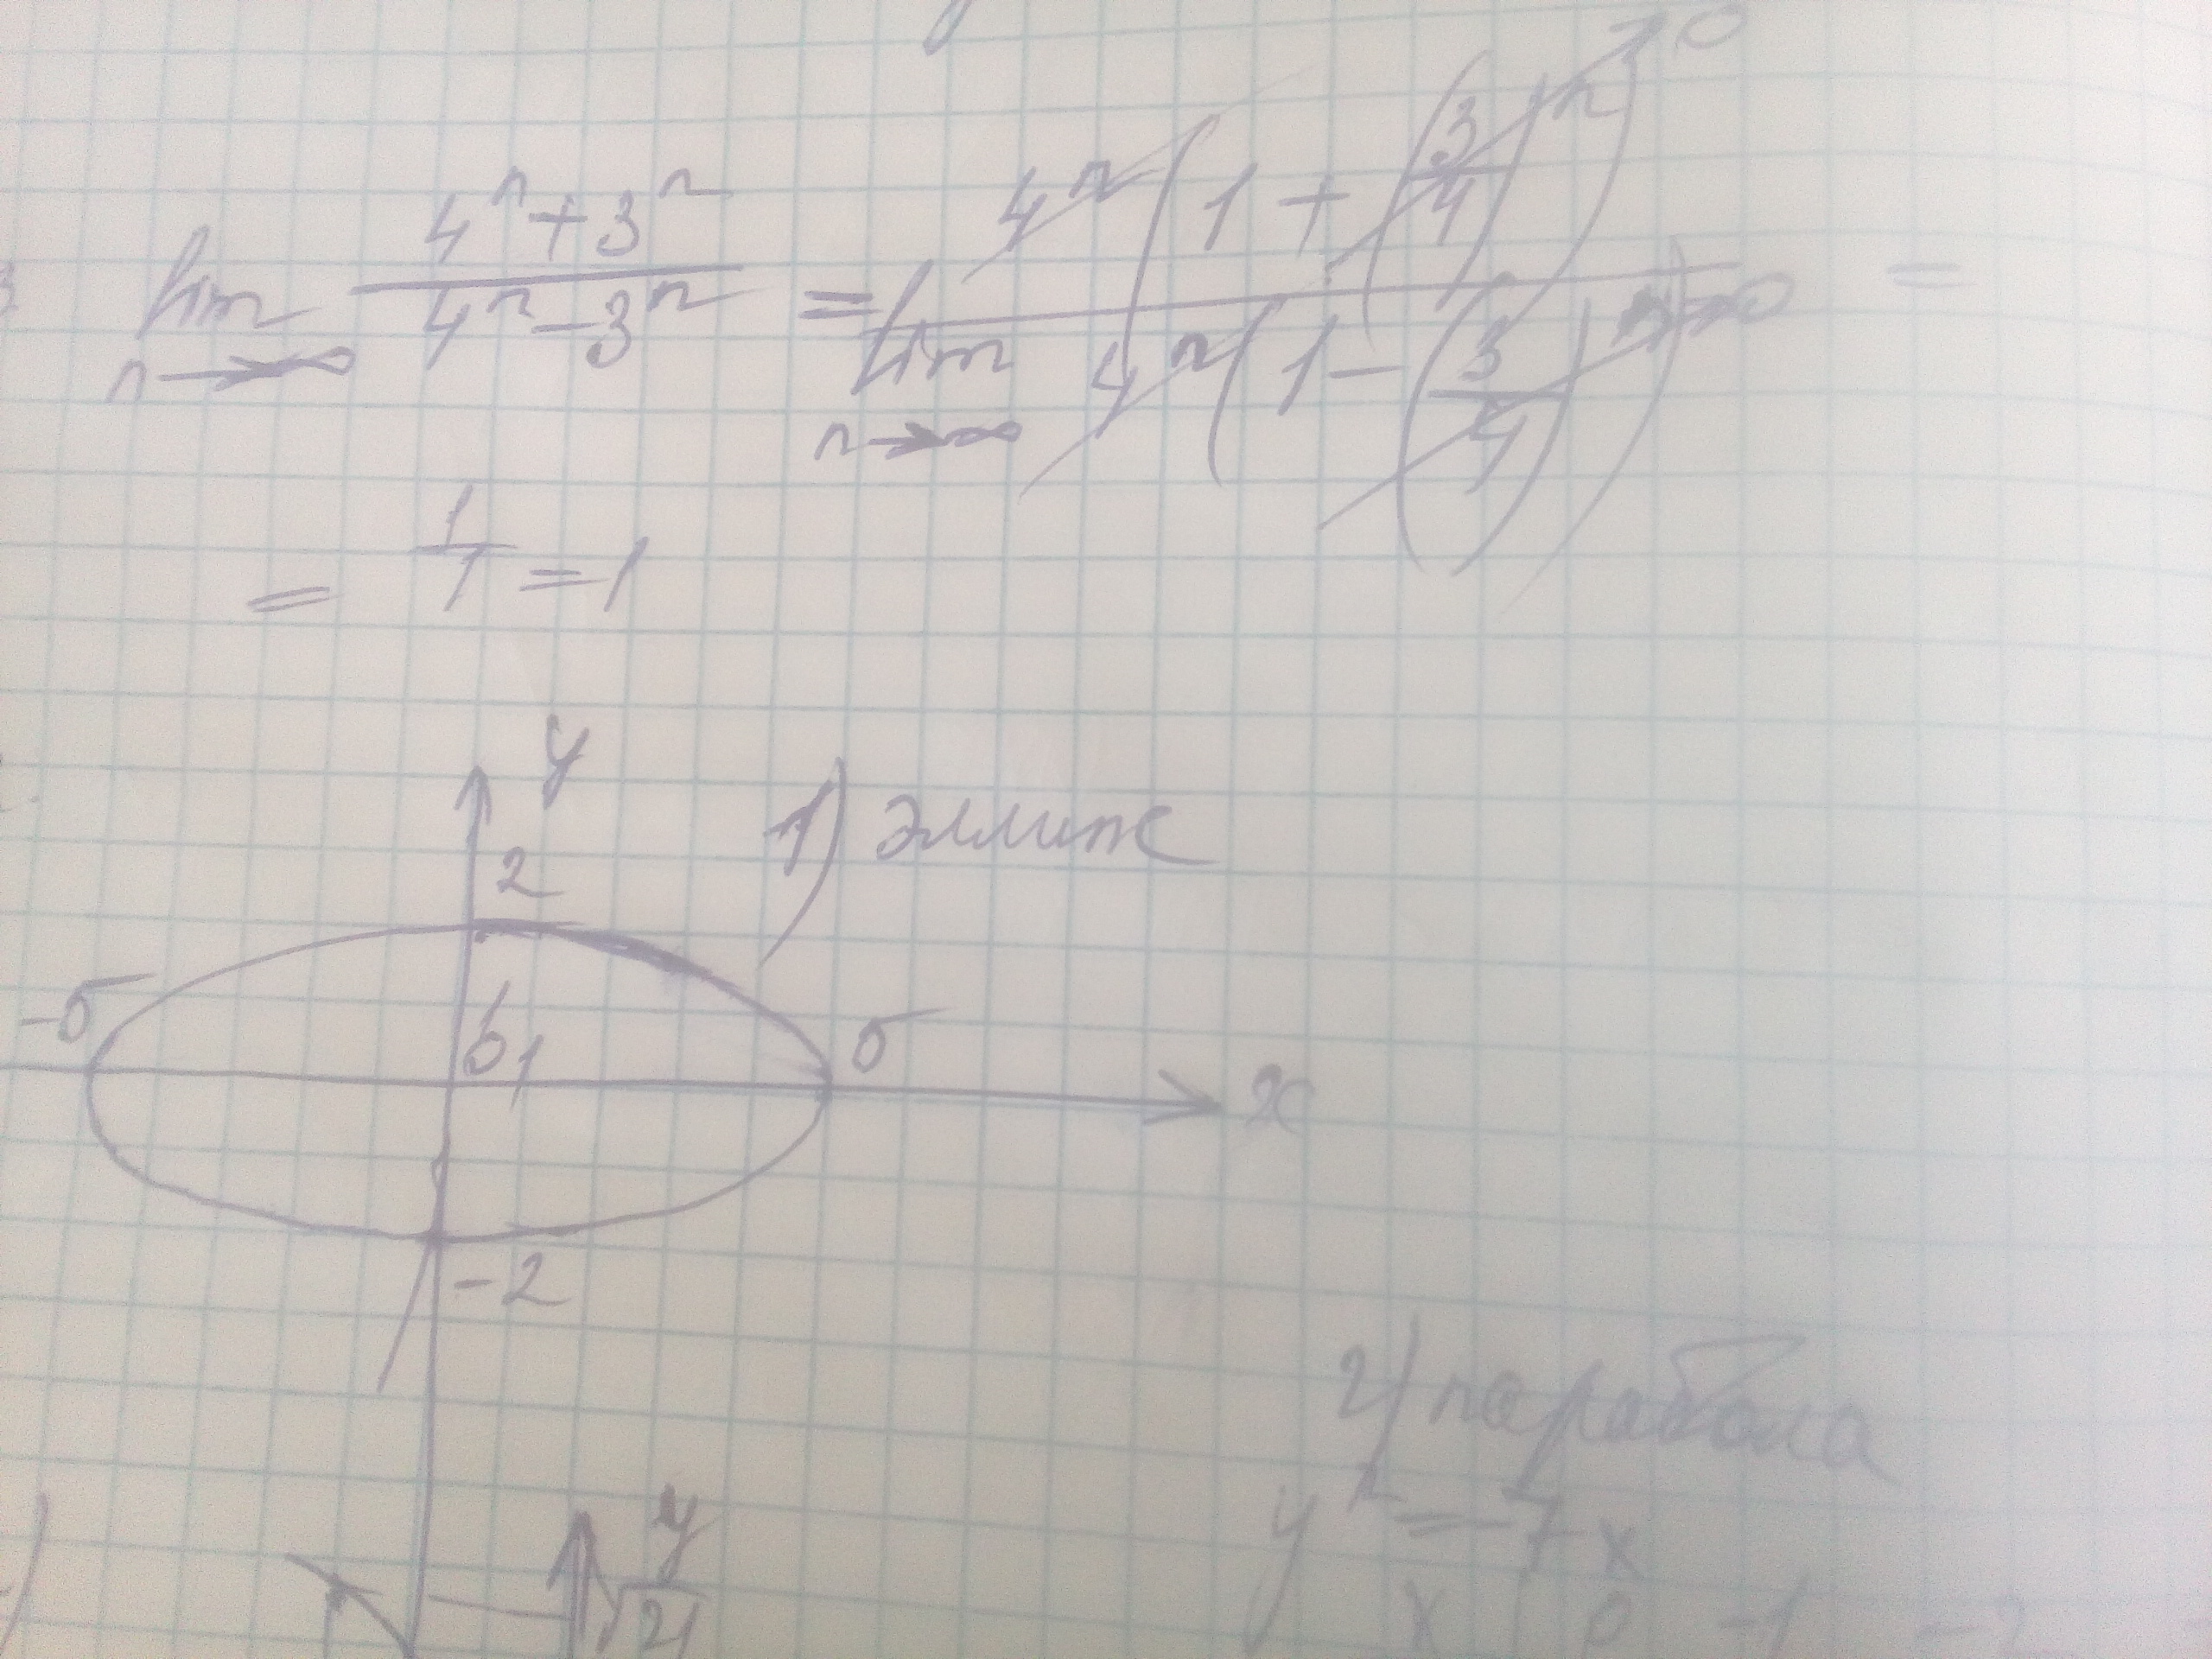 lim n→∞ (4ⁿ+3ⁿ)/(4ⁿ-3ⁿ) = lim n→∞ 4ⁿ(1+(3/4)ⁿ)/4ⁿ(1-(3/4)ⁿ) =
→0
→0
= 1/1 = 1
y
1) эллипс
2
-5
0
1
5
x
-2
2) парабола
y² = -7x
y
√21
x 0 -1 -2